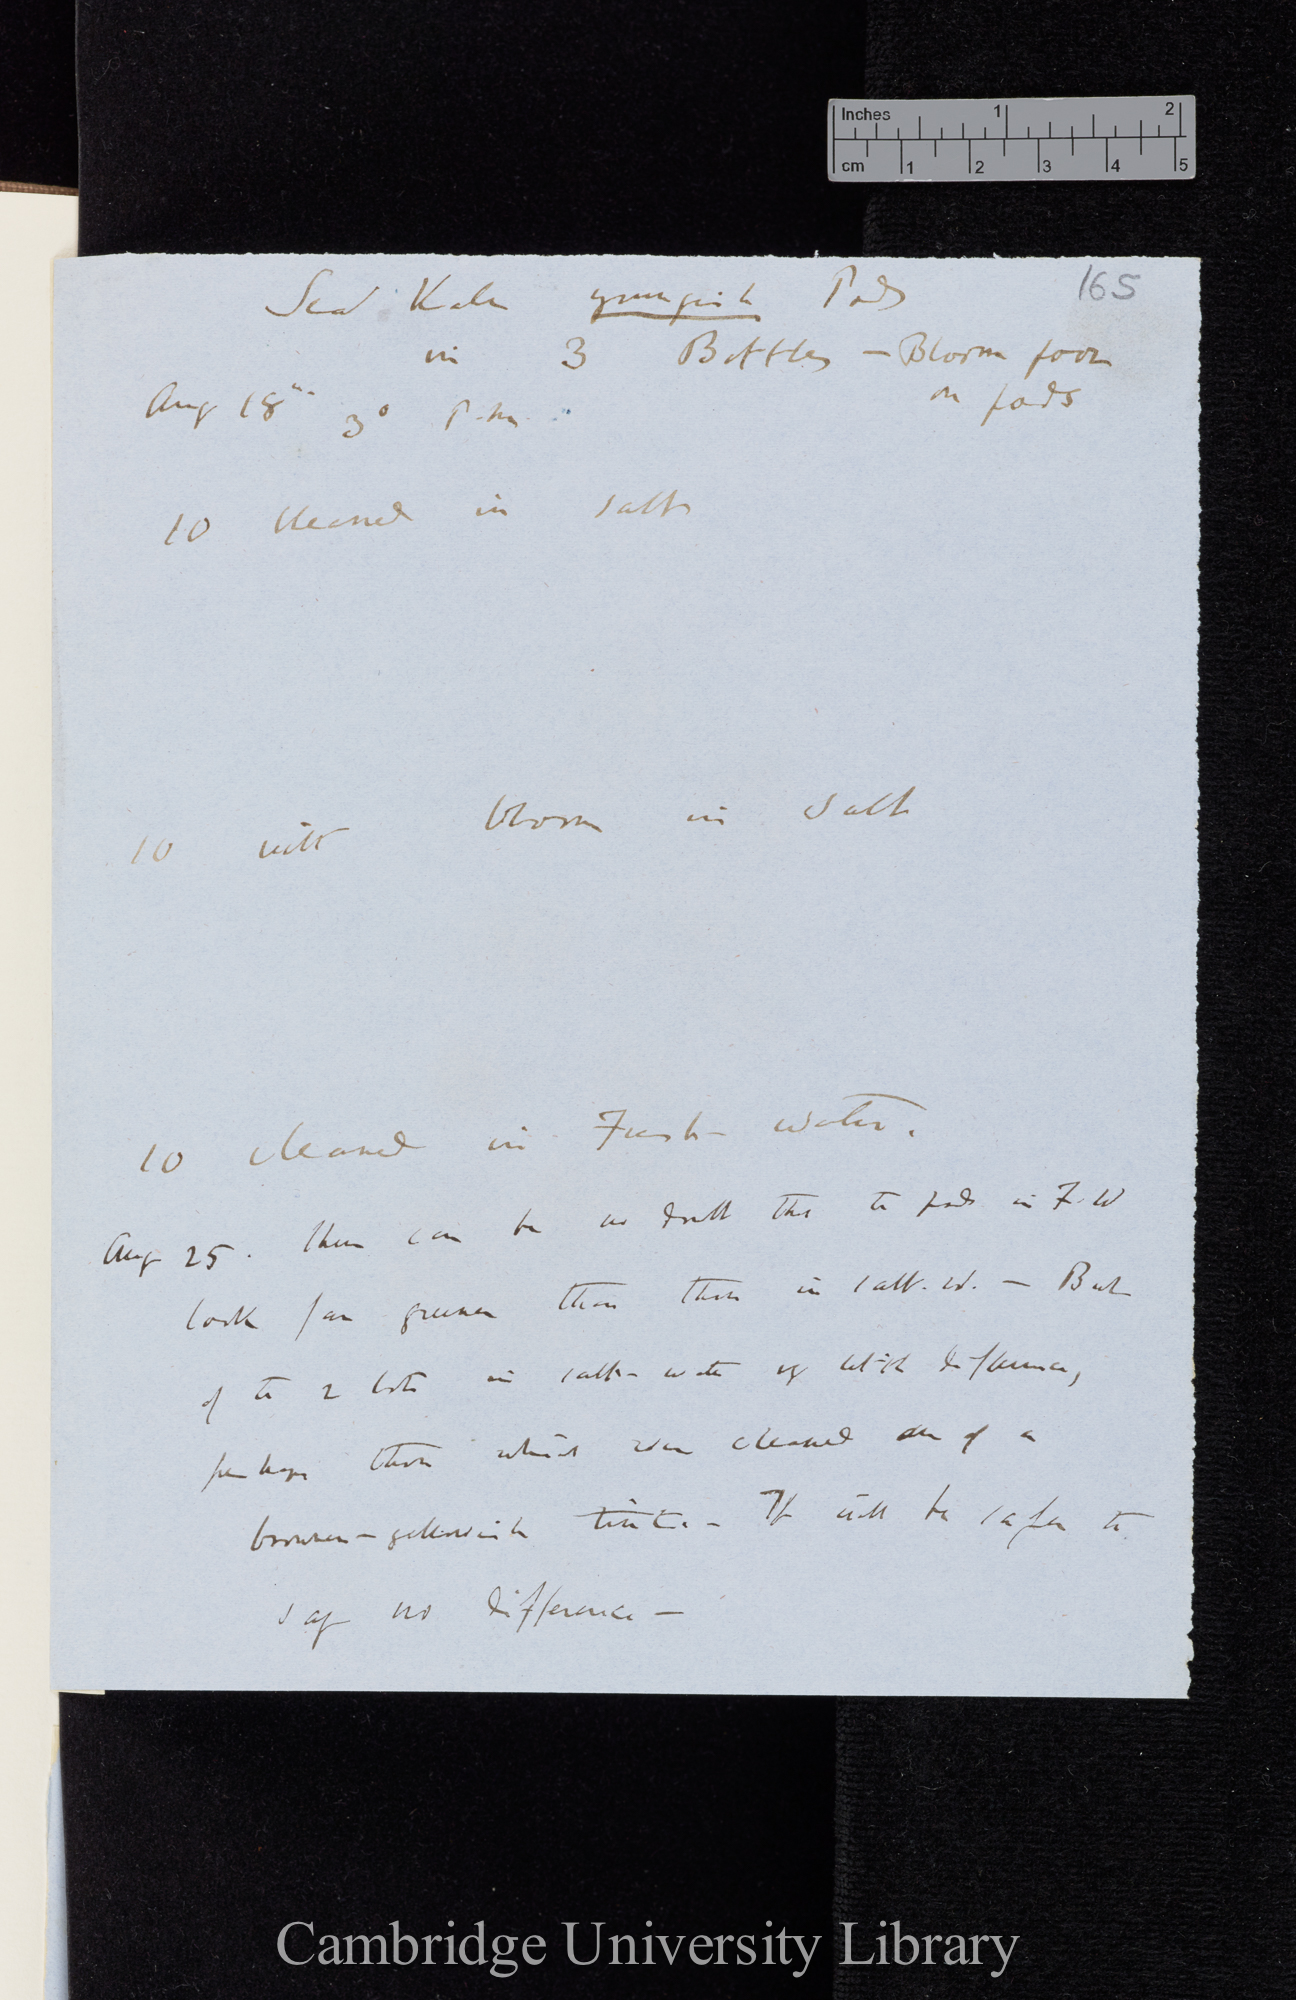 Inches 1 2
cm 1 2 3 4 5
165
Sea Kale youngish Pods
in 3 Bottles — Bloom poor
on pods
Aug 18th 3° P.m.
10 cleaned in salt
10 with bloom in salt
10 cleaned in Fresh water.
Aug 25. There can be no doubt that the pods in F. W
look far greener than those in salt. W. — But
of the 2 lots in salt-water very little difference,
perhaps those which were cleaned are of a
browner-yellowish tint. — It will be safer to
say no difference —
Cambridge University Library